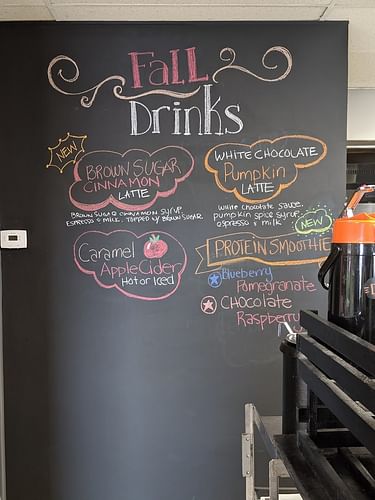 Fall
Drinks
NEW
BROWN SUGAR
CINNAMON
LATTE
BROWN SUGAR CINNAMON SYRUP
ESPRESSO & MILK. TOPPED W/ BROWN SUGAR
WHITE CHOCOLATE
Pumpkin
LATTE
white chocolate sauce.
pumpkin spice syrup
espresso & milk
Caramel
Apple Cider
Hot or Iced
NEW
PROTEIN SMOOTHIE
Blueberry
Pomegranate
CHOCOLATE
Raspberry